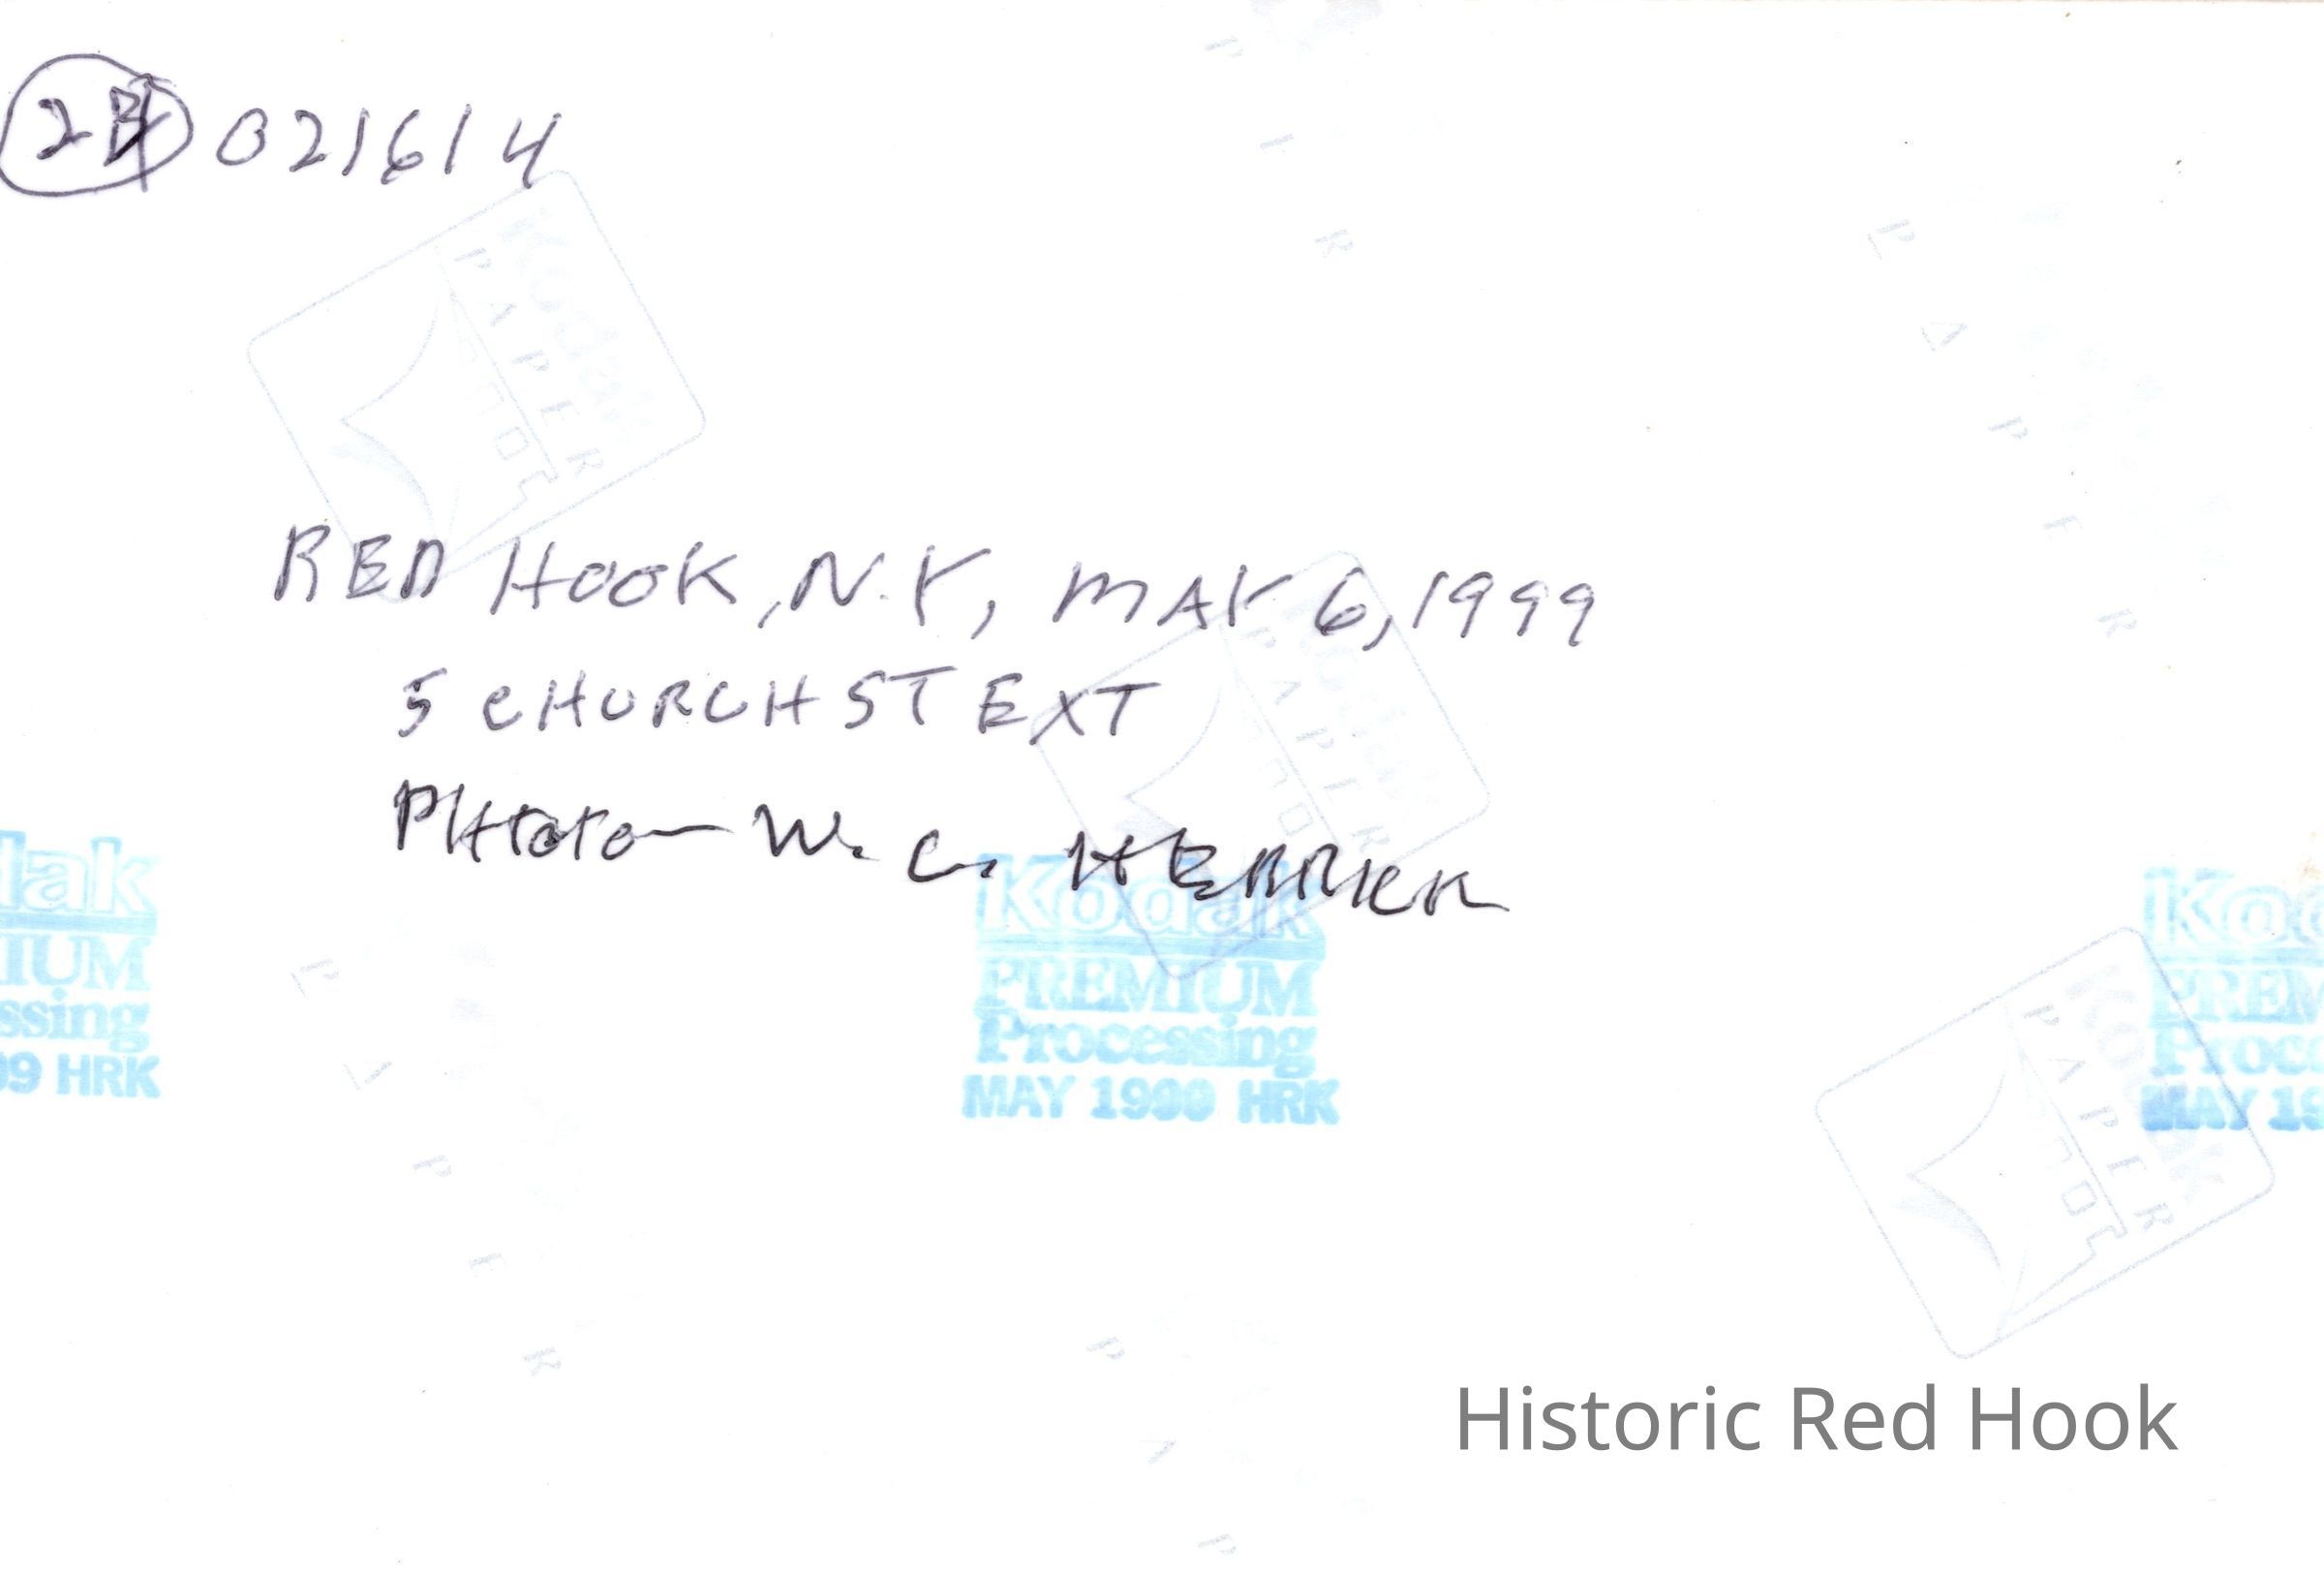 021614
RED HOOK, N.Y, MAY 6, 1999
5 CHURCH ST EXT
PHOTO — W. C. HERRICK
Kodak
PREMIUM
Processing
MAY 1999 HRK
dak
IUM
ssing
99 HRK
Kod
PREM
Proce
MAY 19
Kodak
PAPER
Kodak
PAPER
Kodak
PAPER
PAPER
PAPER
Historic Red Hook